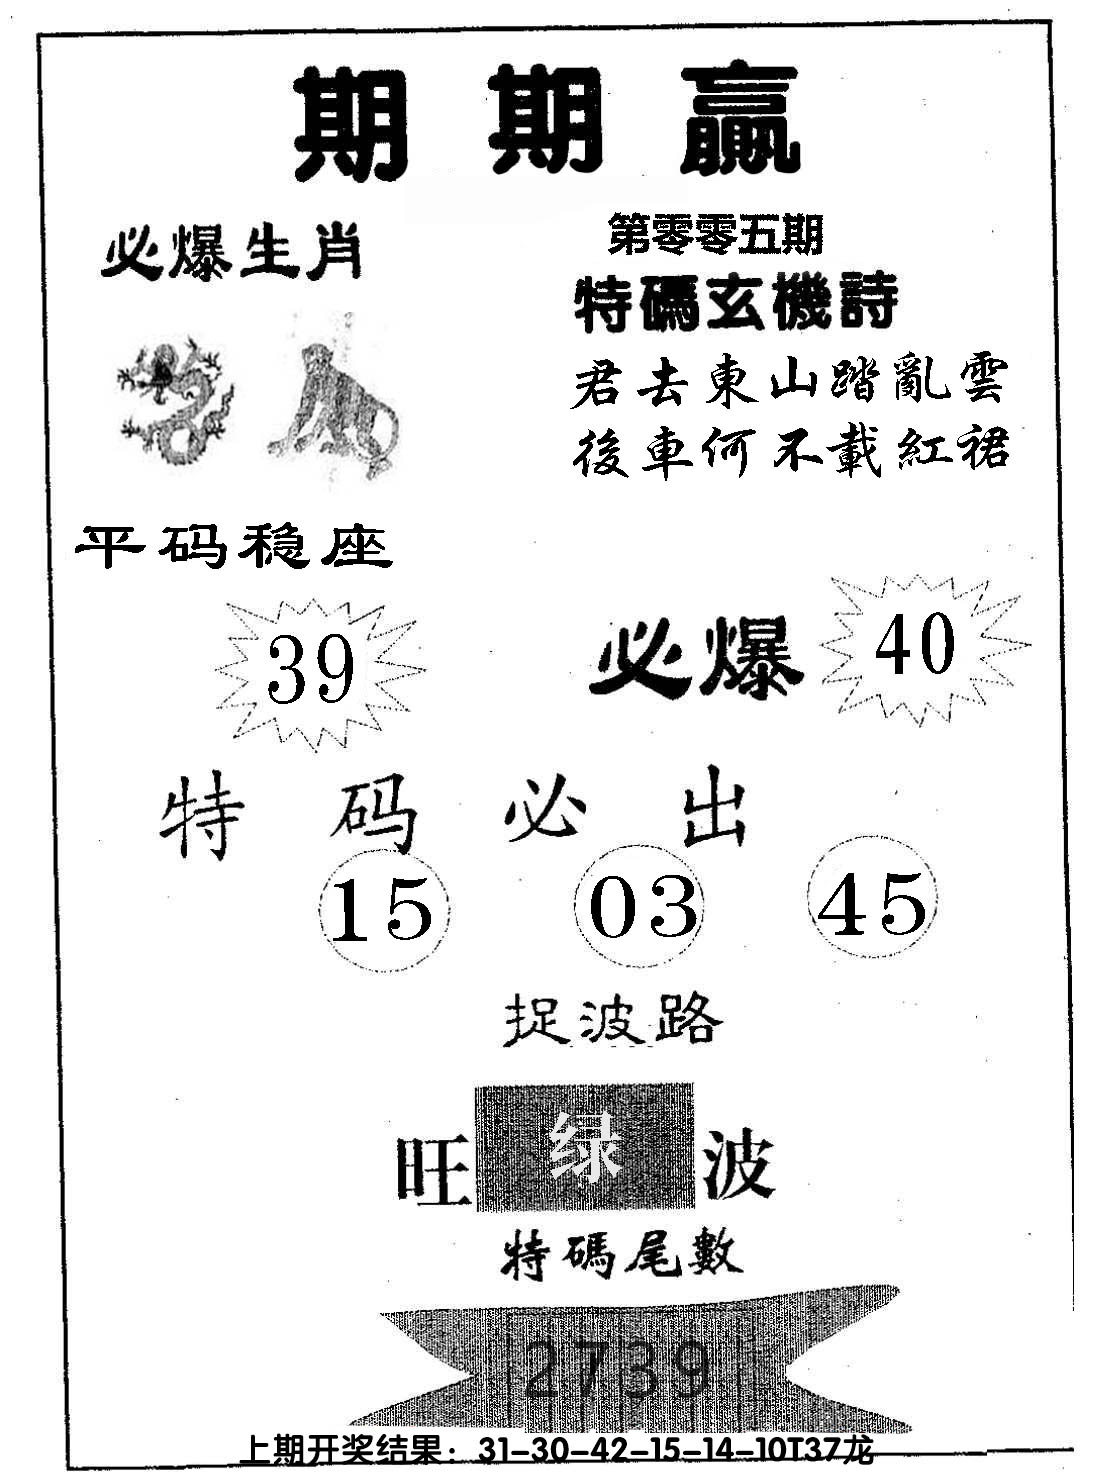 期期赢
必爆生肖
第零零五期
特碼玄機詩
君去東山踏亂雲
後車何不載紅裙
平码稳座
39
必爆 40
特码必出
15 03 45
捉波路
旺 绿 波
特碼尾數
2739
上期开奖结果：31-30-42-15-14-10T37龙